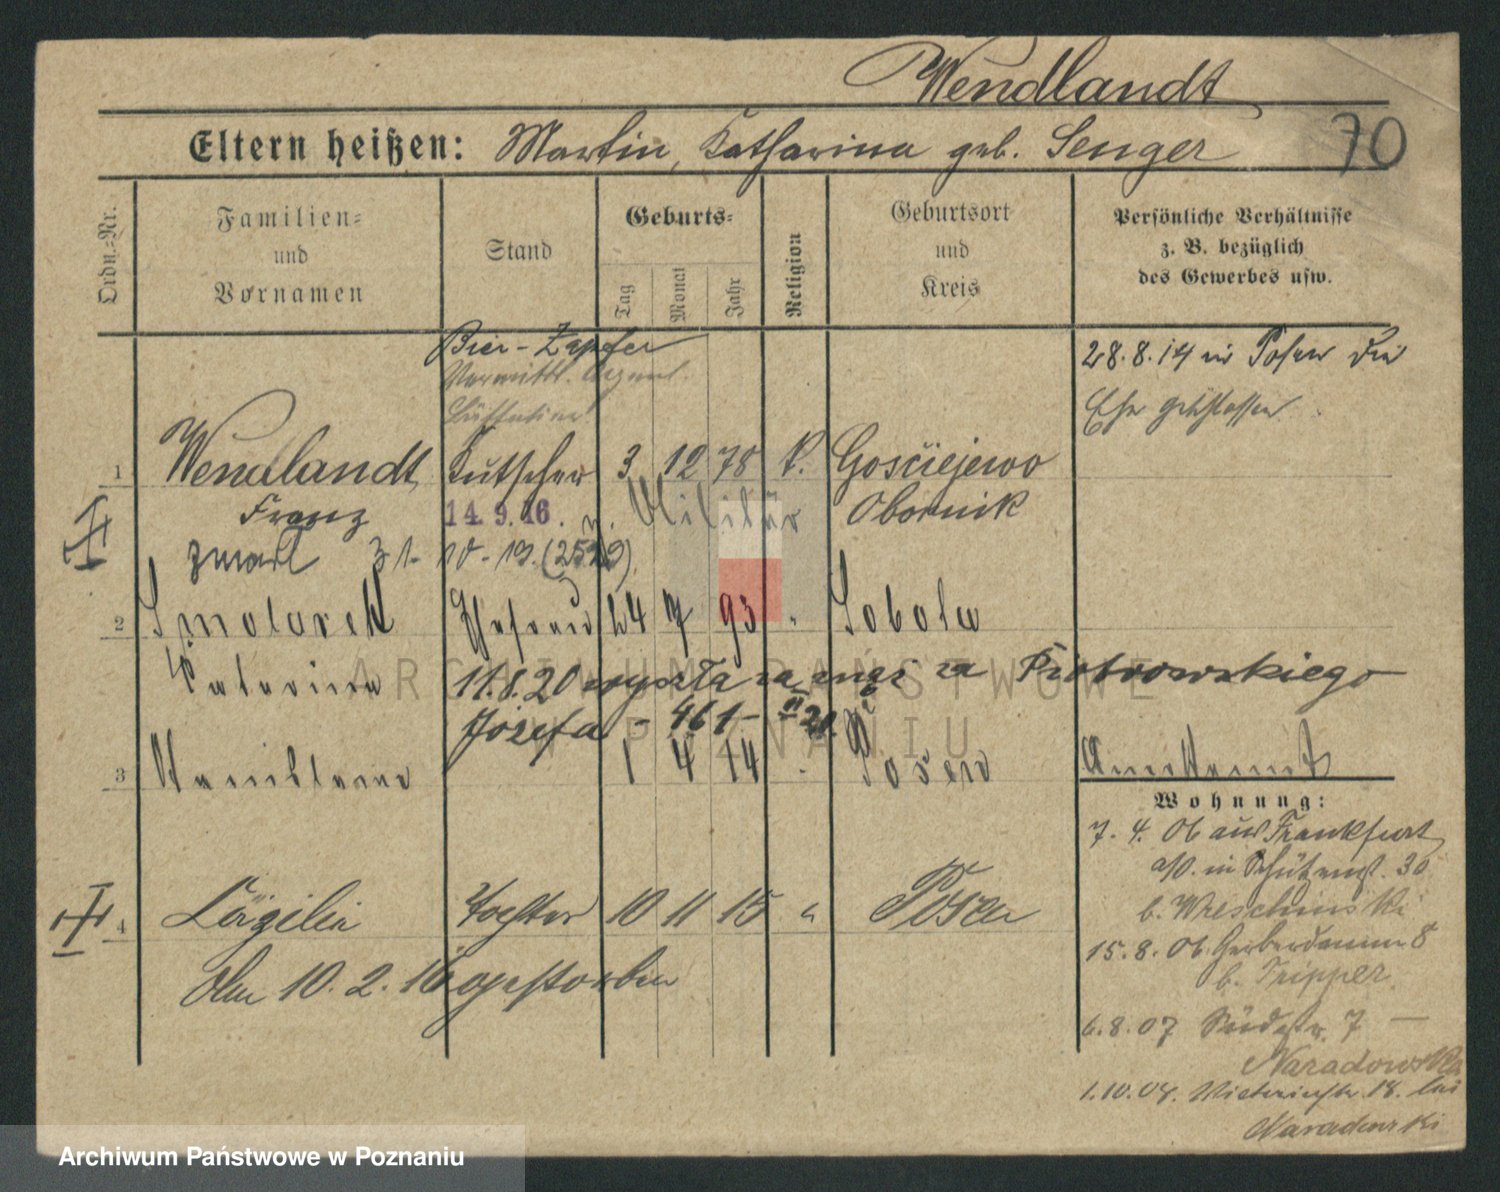 Wendlandt
70
Eltern heißen: Martin, Katharina geb. Senger
Ordn.-Nr.
Familien-
und
Vornamen
Stand
Geburts-
Tag
Monat
Jahr
Religion
Geburtsort
und
Kreis
Persönliche Verhältnisse
z. B. bezüglich
des Gewerbes usw.
Bier-Zapfer
28.8.14 in Posen die
Ehe geschlossen
1 Wendlandt Kutscher 3 12 78 k. Gościejewo
Franz 14. 9. 16. Militär Obornik
zmarł 31-10-19.
2 Smolarek Ehefrau 24 7 93 " Sobota
Katarina 11.8.20 wyszła za mąż za Piotrowskiego
Józefa - 461 - II 20.
3 Stanislaus 1 4 14 Posen
Wohnung:
7. 4. 06 aus Frankfurt
a/O. in Schützenst. 30
b. Wreschinski
4 Cäzilie Tochter 10 11 15 " Posen
15. 8. 06. Gerberdamm 8
b. Tripper
Am 10. 2. 16 gestorben
6.8.07 Südstr. 7
Naradowska
1.10.07. Victoriastr. 18. bei
Naradowski
ARCHIWUM PAŃSTWOWE
W POZNANIU
Archiwum Państwowe w Poznaniu